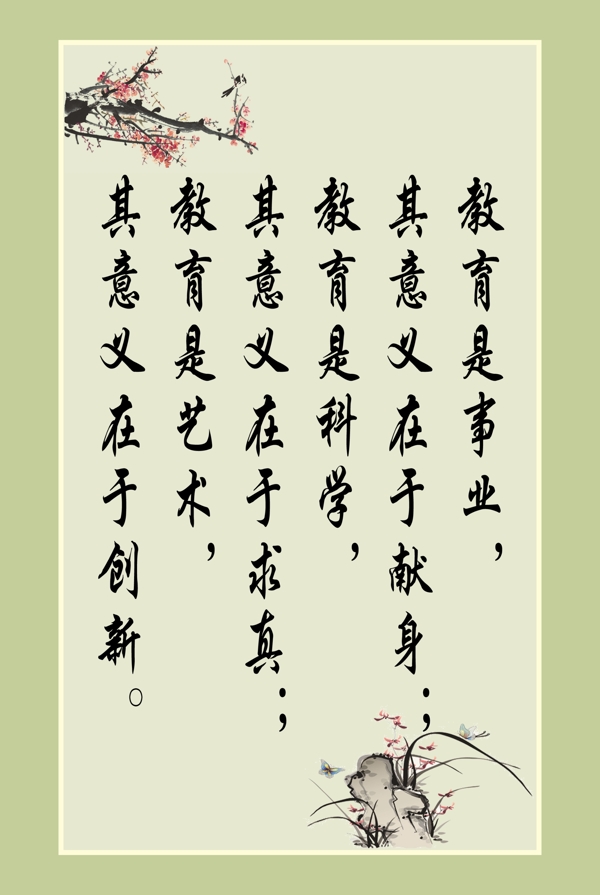 教育是事业，
其意义在于献身；
教育是科学，
其意义在于求真；
教育是艺术，
其意义在于创新。